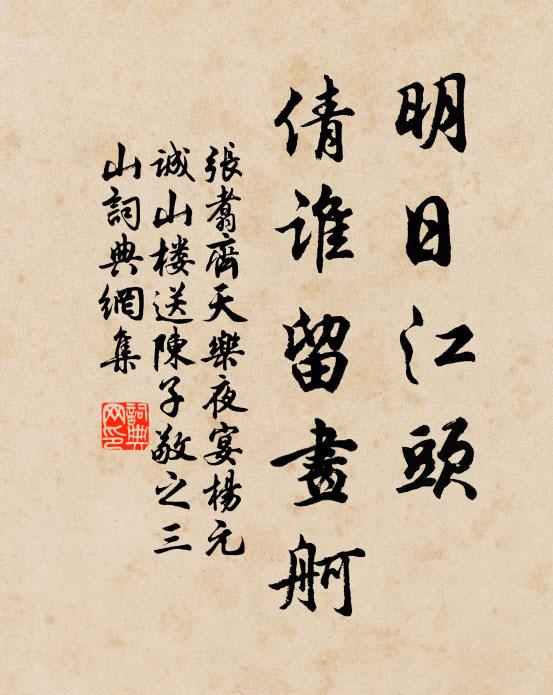 明日江頭
倩誰留畫舸
張翥齊天樂夜宴楊元
誠山楼送陳子敬之三
山詞典網集
詞典网印